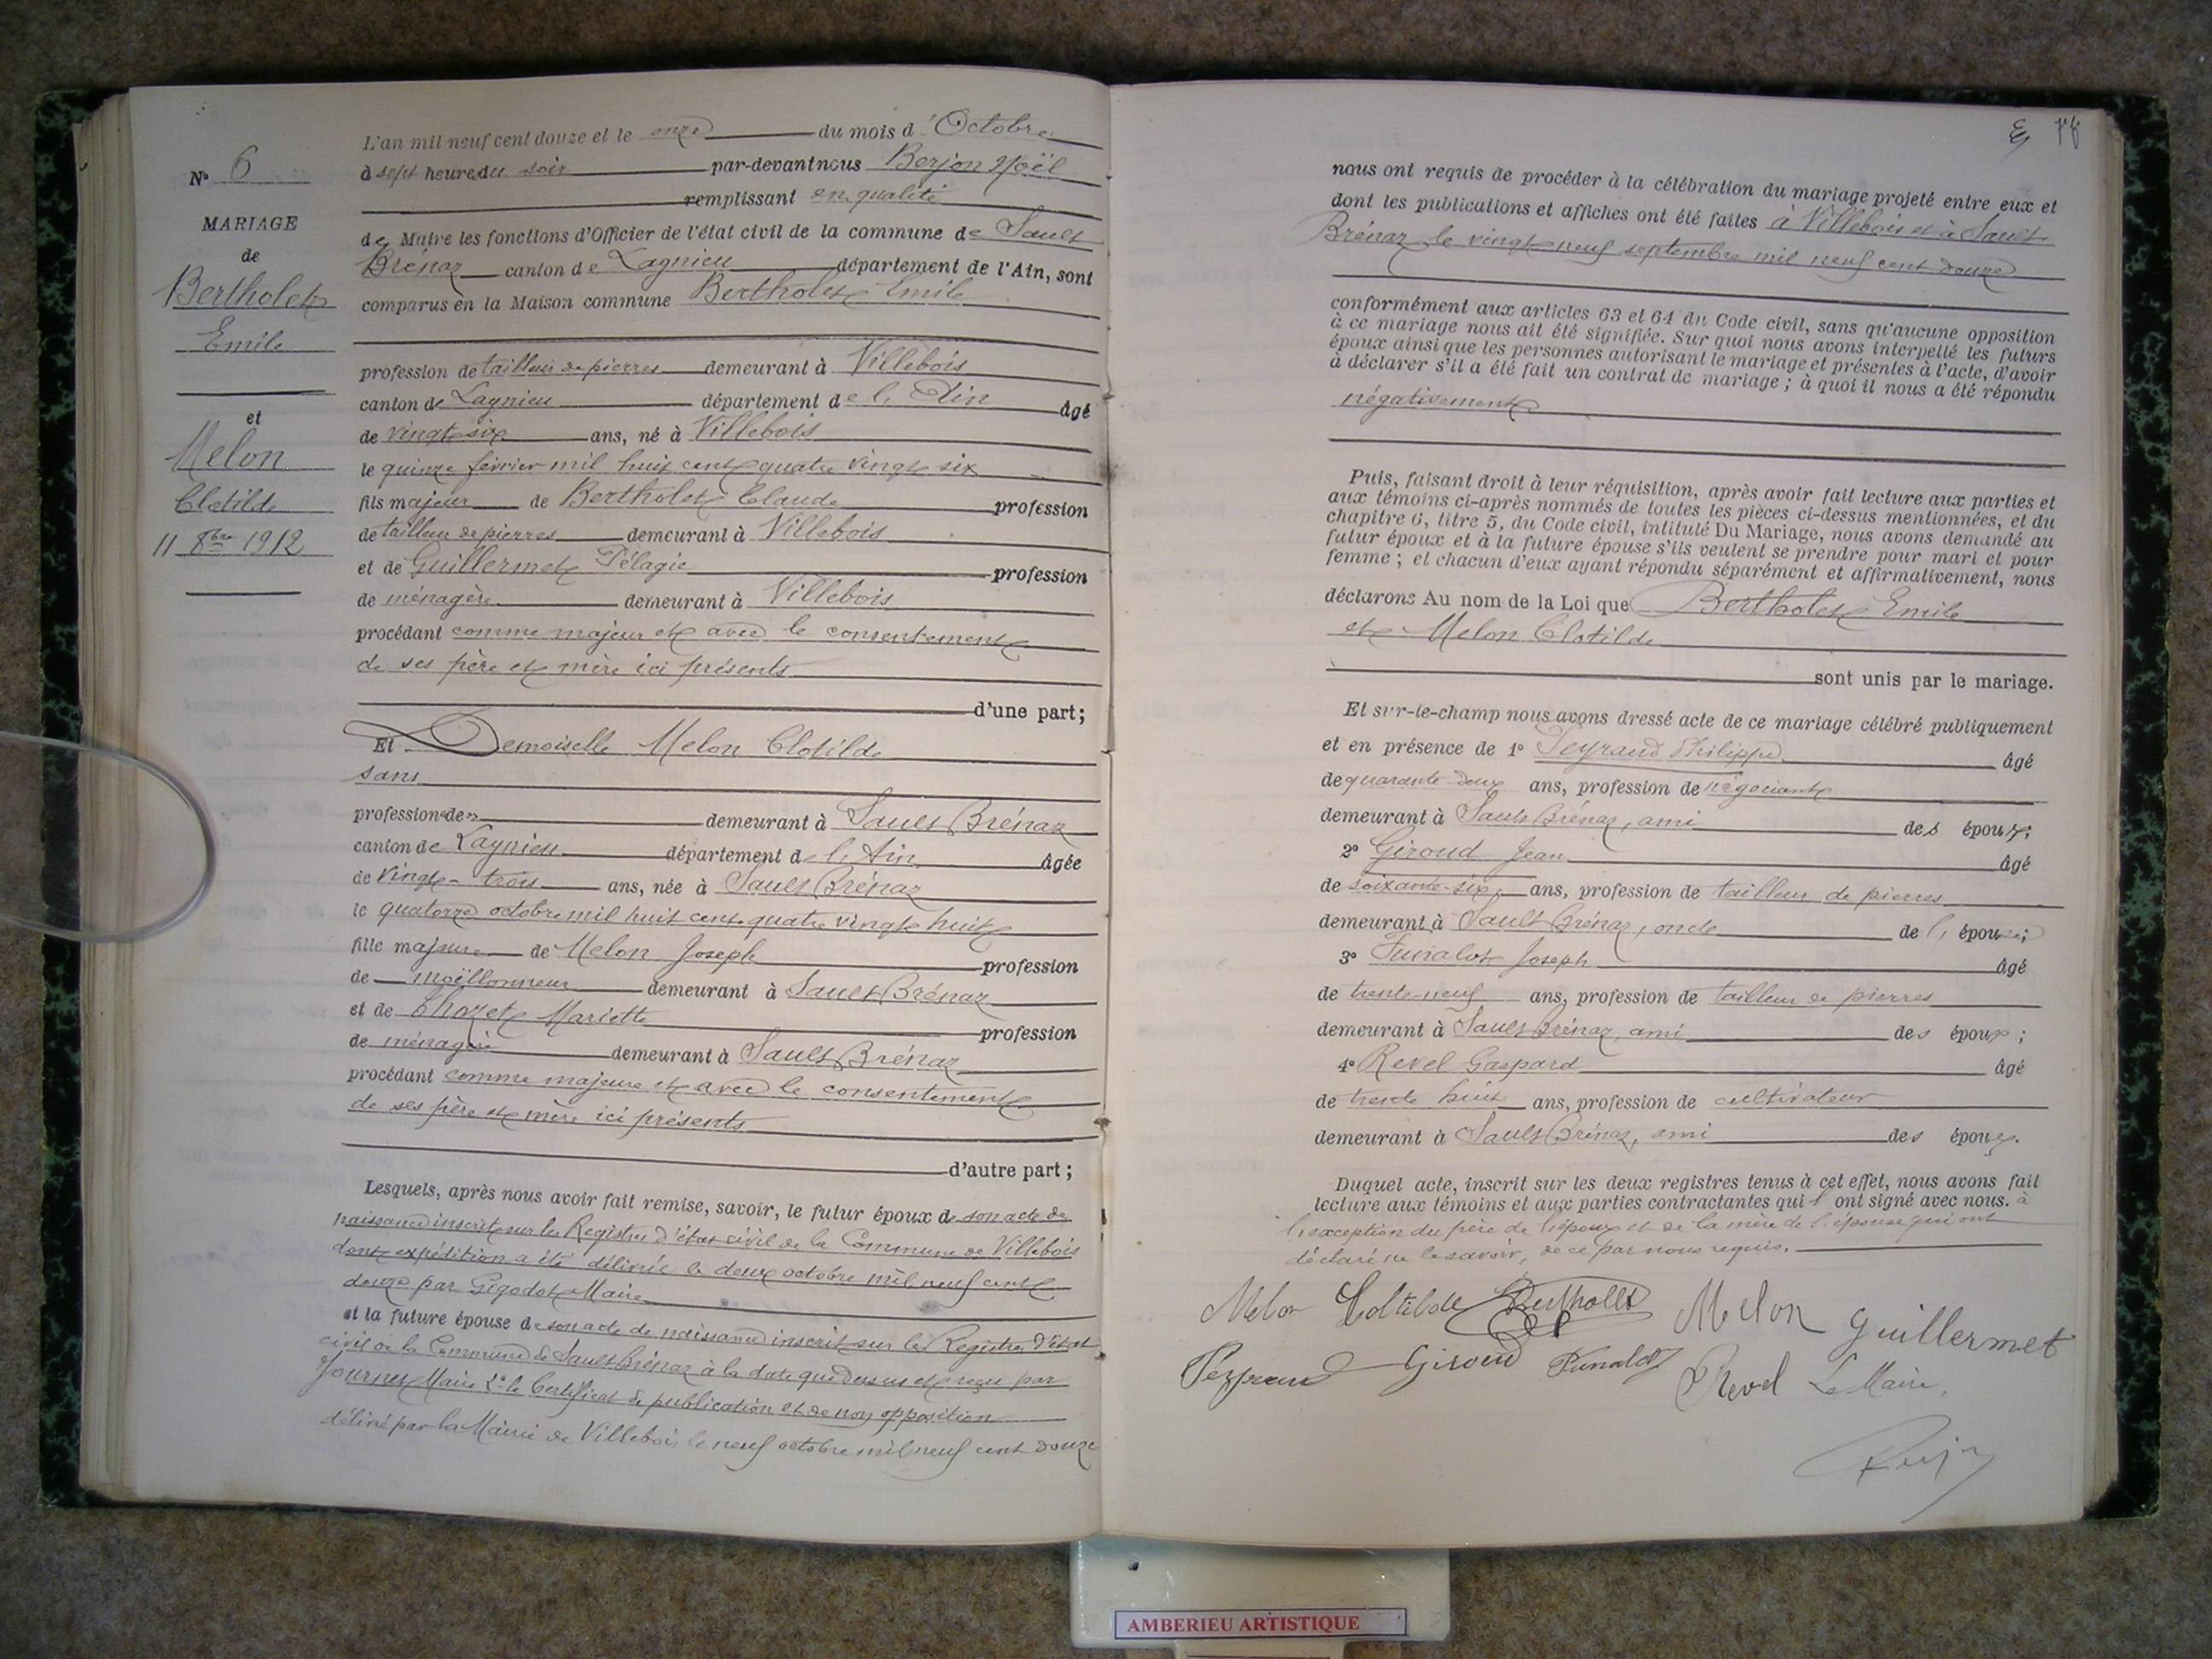 N° 6
MARIAGE
de
Bertholet
Emile
et
Melon
Clotilde
11 8bre 1912
L'an mil neuf cent douze et le onze du mois d'Octobre
à sept heures du soir par-devant nous Berjon Noël
remplissant en qualité
de Maire les fonctions d'Officier de l'état civil de la commune de Sault
Brénaz canton de Lagnieu département de l'Ain, sont
comparus en la Maison commune Bertholet Emile
profession de tailleur de pierres demeurant à Villebois
canton de Lagnieu département de l'Ain âgé
de vingt six ans, né à Villebois
le quinze février mil huit cent quatre vingt six
fils majeur de Bertholet Claude profession
de tailleur de pierres demeurant à Villebois
et de Guillermet Pélagie profession
de ménagère demeurant à Villebois
procédant comme majeur et avec le consentement
de ses père et mère ici présents
d'une part;
Et Demoiselle Melon Clotilde
sans
profession de demeurant à Sault Brénaz
canton de Lagnieu département de l'Ain âgée
de vingt-trois ans, née à Sault Brénaz
le quatorze octobre mil huit cent quatre vingt huit
fille majeure de Melon Joseph profession
de moëllonneur demeurant à Sault Brénaz
et de Chozet Mariette profession
de ménagère demeurant à Sault Brénaz
procédant comme majeure et avec le consentement
de ses père et mère ici présents
d'autre part;
Lesquels, après nous avoir fait remise, savoir, le futur époux de son acte de
naissance inscrit sur les Registres d'état civil de la Commune de Villebois
dont expédition a été délivrée le deux octobre mil neuf cent
douze par Gigodot Maire
et la future épouse de son acte de naissance inscrit sur les Registres d'état
civil de la Commune de Sault Brénaz à la date que dessus et reçu par
Journet Maire 2° le Certificat de publication et de non opposition
délivré par la Mairie de Villebois le neuf octobre mil neuf cent douze
nous ont requis de procéder à la célébration du mariage projeté entre eux et
dont les publications et affiches ont été faites à Villebois et à Sault
Brénaz le vingt neuf septembre mil neuf cent douze
conformément aux articles 63 et 64 du Code civil, sans qu'aucune opposition
à ce mariage nous ait été signifiée. Sur quoi nous avons interpellé les futurs
époux ainsi que les personnes autorisant le mariage et présentes à l'acte, d'avoir
à déclarer s'il a été fait un contrat de mariage; à quoi il nous a été répondu
négativement
Puis, faisant droit à leur réquisition, après avoir fait lecture aux parties et
aux témoins ci-après nommés de toutes les pièces ci-dessus mentionnées, et du
chapitre 6, titre 5, du Code civil, intitulé Du Mariage, nous avons demandé au
futur époux et à la future épouse s'ils veulent se prendre pour mari et pour
femme; et chacun d'eux ayant répondu séparément et affirmativement, nous
déclarons Au nom de la Loi que Bertholet Emile
et Melon Clotilde
sont unis par le mariage.
Et sur-le-champ nous avons dressé acte de ce mariage célébré publiquement
et en présence de 1° Peyraud Philippe âgé
de quarante-deux ans, profession de négociant
demeurant à Sault Brénaz, ami des époux;
2° Giroud Jean âgé
de soixante-six ans, profession de tailleur de pierres
demeurant à Sault Brénaz, oncle de l'épouse;
3° Funalot Joseph âgé
de trente-neuf ans, profession de tailleur de pierres
demeurant à Sault Brénaz, ami des époux;
4° Revel Gaspard âgé
de trente huit ans, profession de cultivateur
demeurant à Sault Brénaz, ami des époux.
Duquel acte, inscrit sur les deux registres tenus à cet effet, nous avons fait
lecture aux témoins et aux parties contractantes qui l'ont signé avec nous. à
l'exception du père de l'époux et de la mère de l'épouse qui ont
déclaré ne le savoir, de ce par nous requis.
Melon Coltilde Bertholet Melon Guillermet
Peyraud Giroud Funalot Revel Le Maire,
AMBERIEU ARTISTIQUE